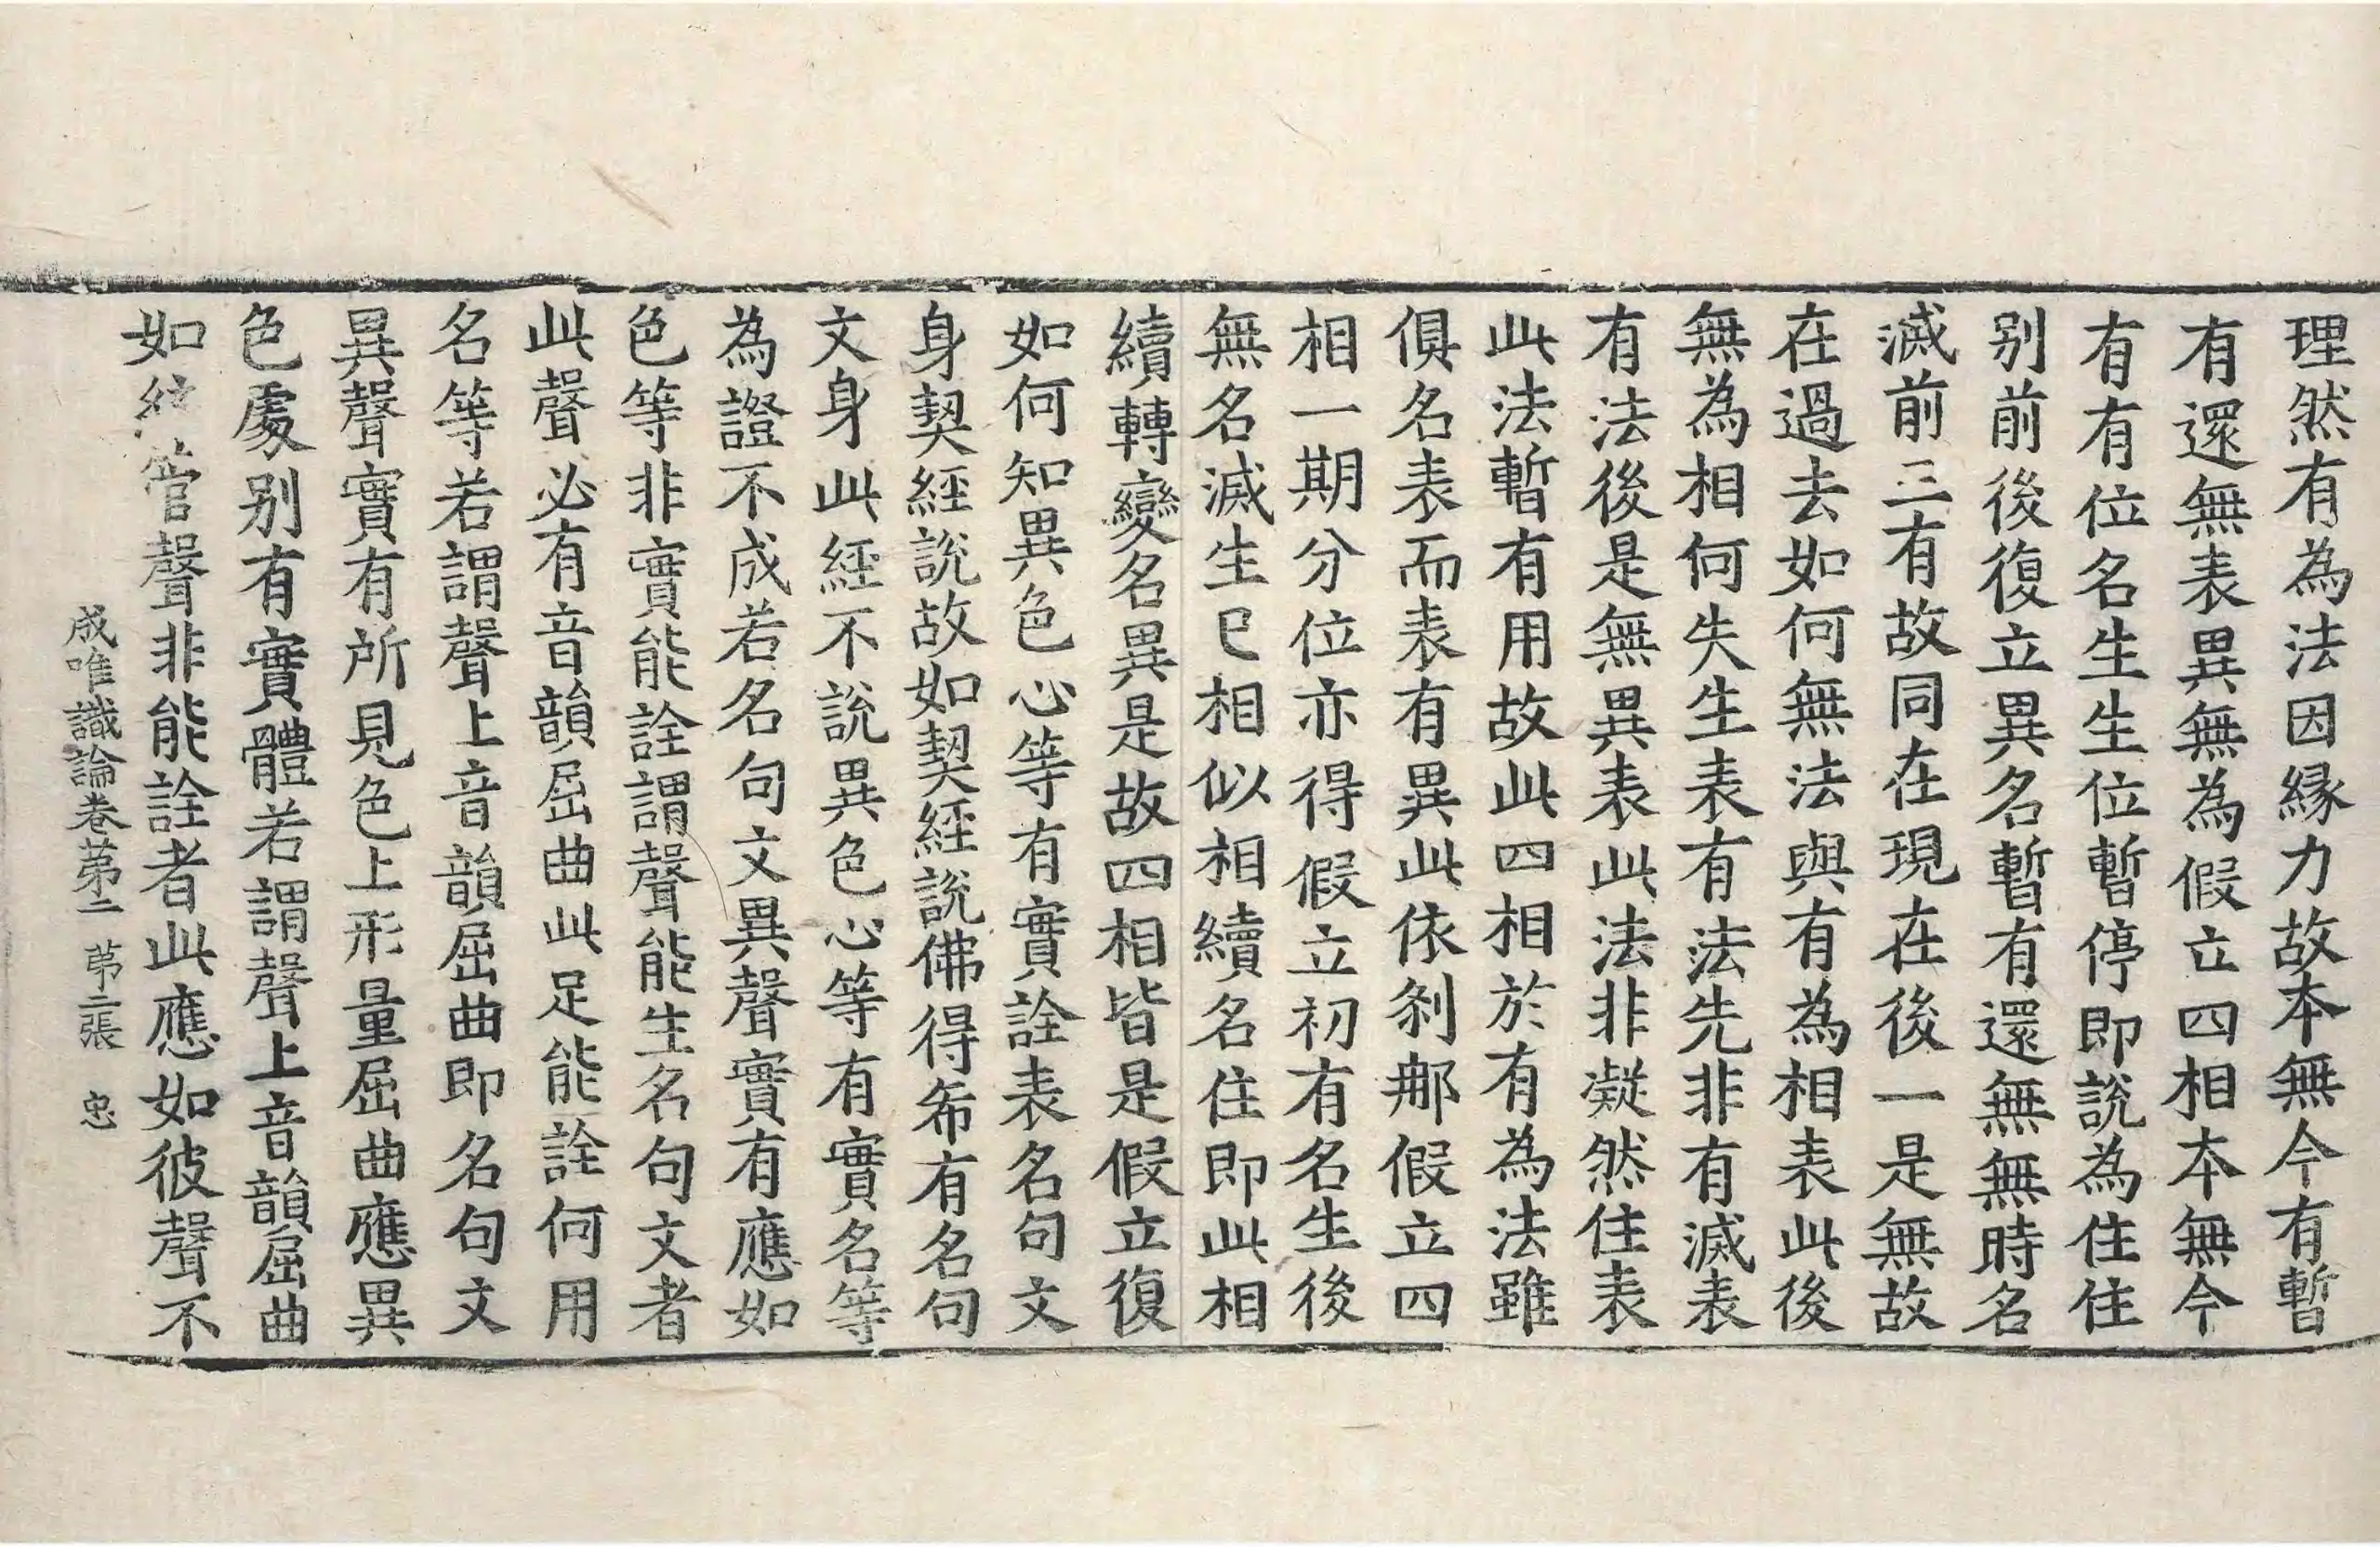 理然有為法因縁力故本無今有暫
有還無表異無為假立四相本無今
有有位名生生位暫停即說為住住
别前後復立異名暫有還無無時名
滅前三有故同在現在後一是無故
在過去如何無法與有為相表此後
無為相何失生表有法先非有滅表
有法後是無異表此法非凝然住表
此法暫有用故此四相於有為法雖
俱名表而表有異此依剎那假立四
相一期分位亦得假立初有名生後
無名滅生已相似相續名住即此相
續轉變名異是故四相皆是假立復
如何知異色心等有實詮表名句文
身契經說故如契經說佛得希有名句
文身此經不說異色心等有實名等
為證不成若名句文異聲實有應如
色等非實能詮謂聲能生名句文者
此聲必有音韻屈曲此足能詮何用
名等若謂聲上音韻屈曲即名句文
異聲實有所見色上形量屈曲應異
色處别有實體若謂聲上音韻屈曲
如管聲非能詮者此應如彼聲不
成唯識論卷苐二 苐二張 忠